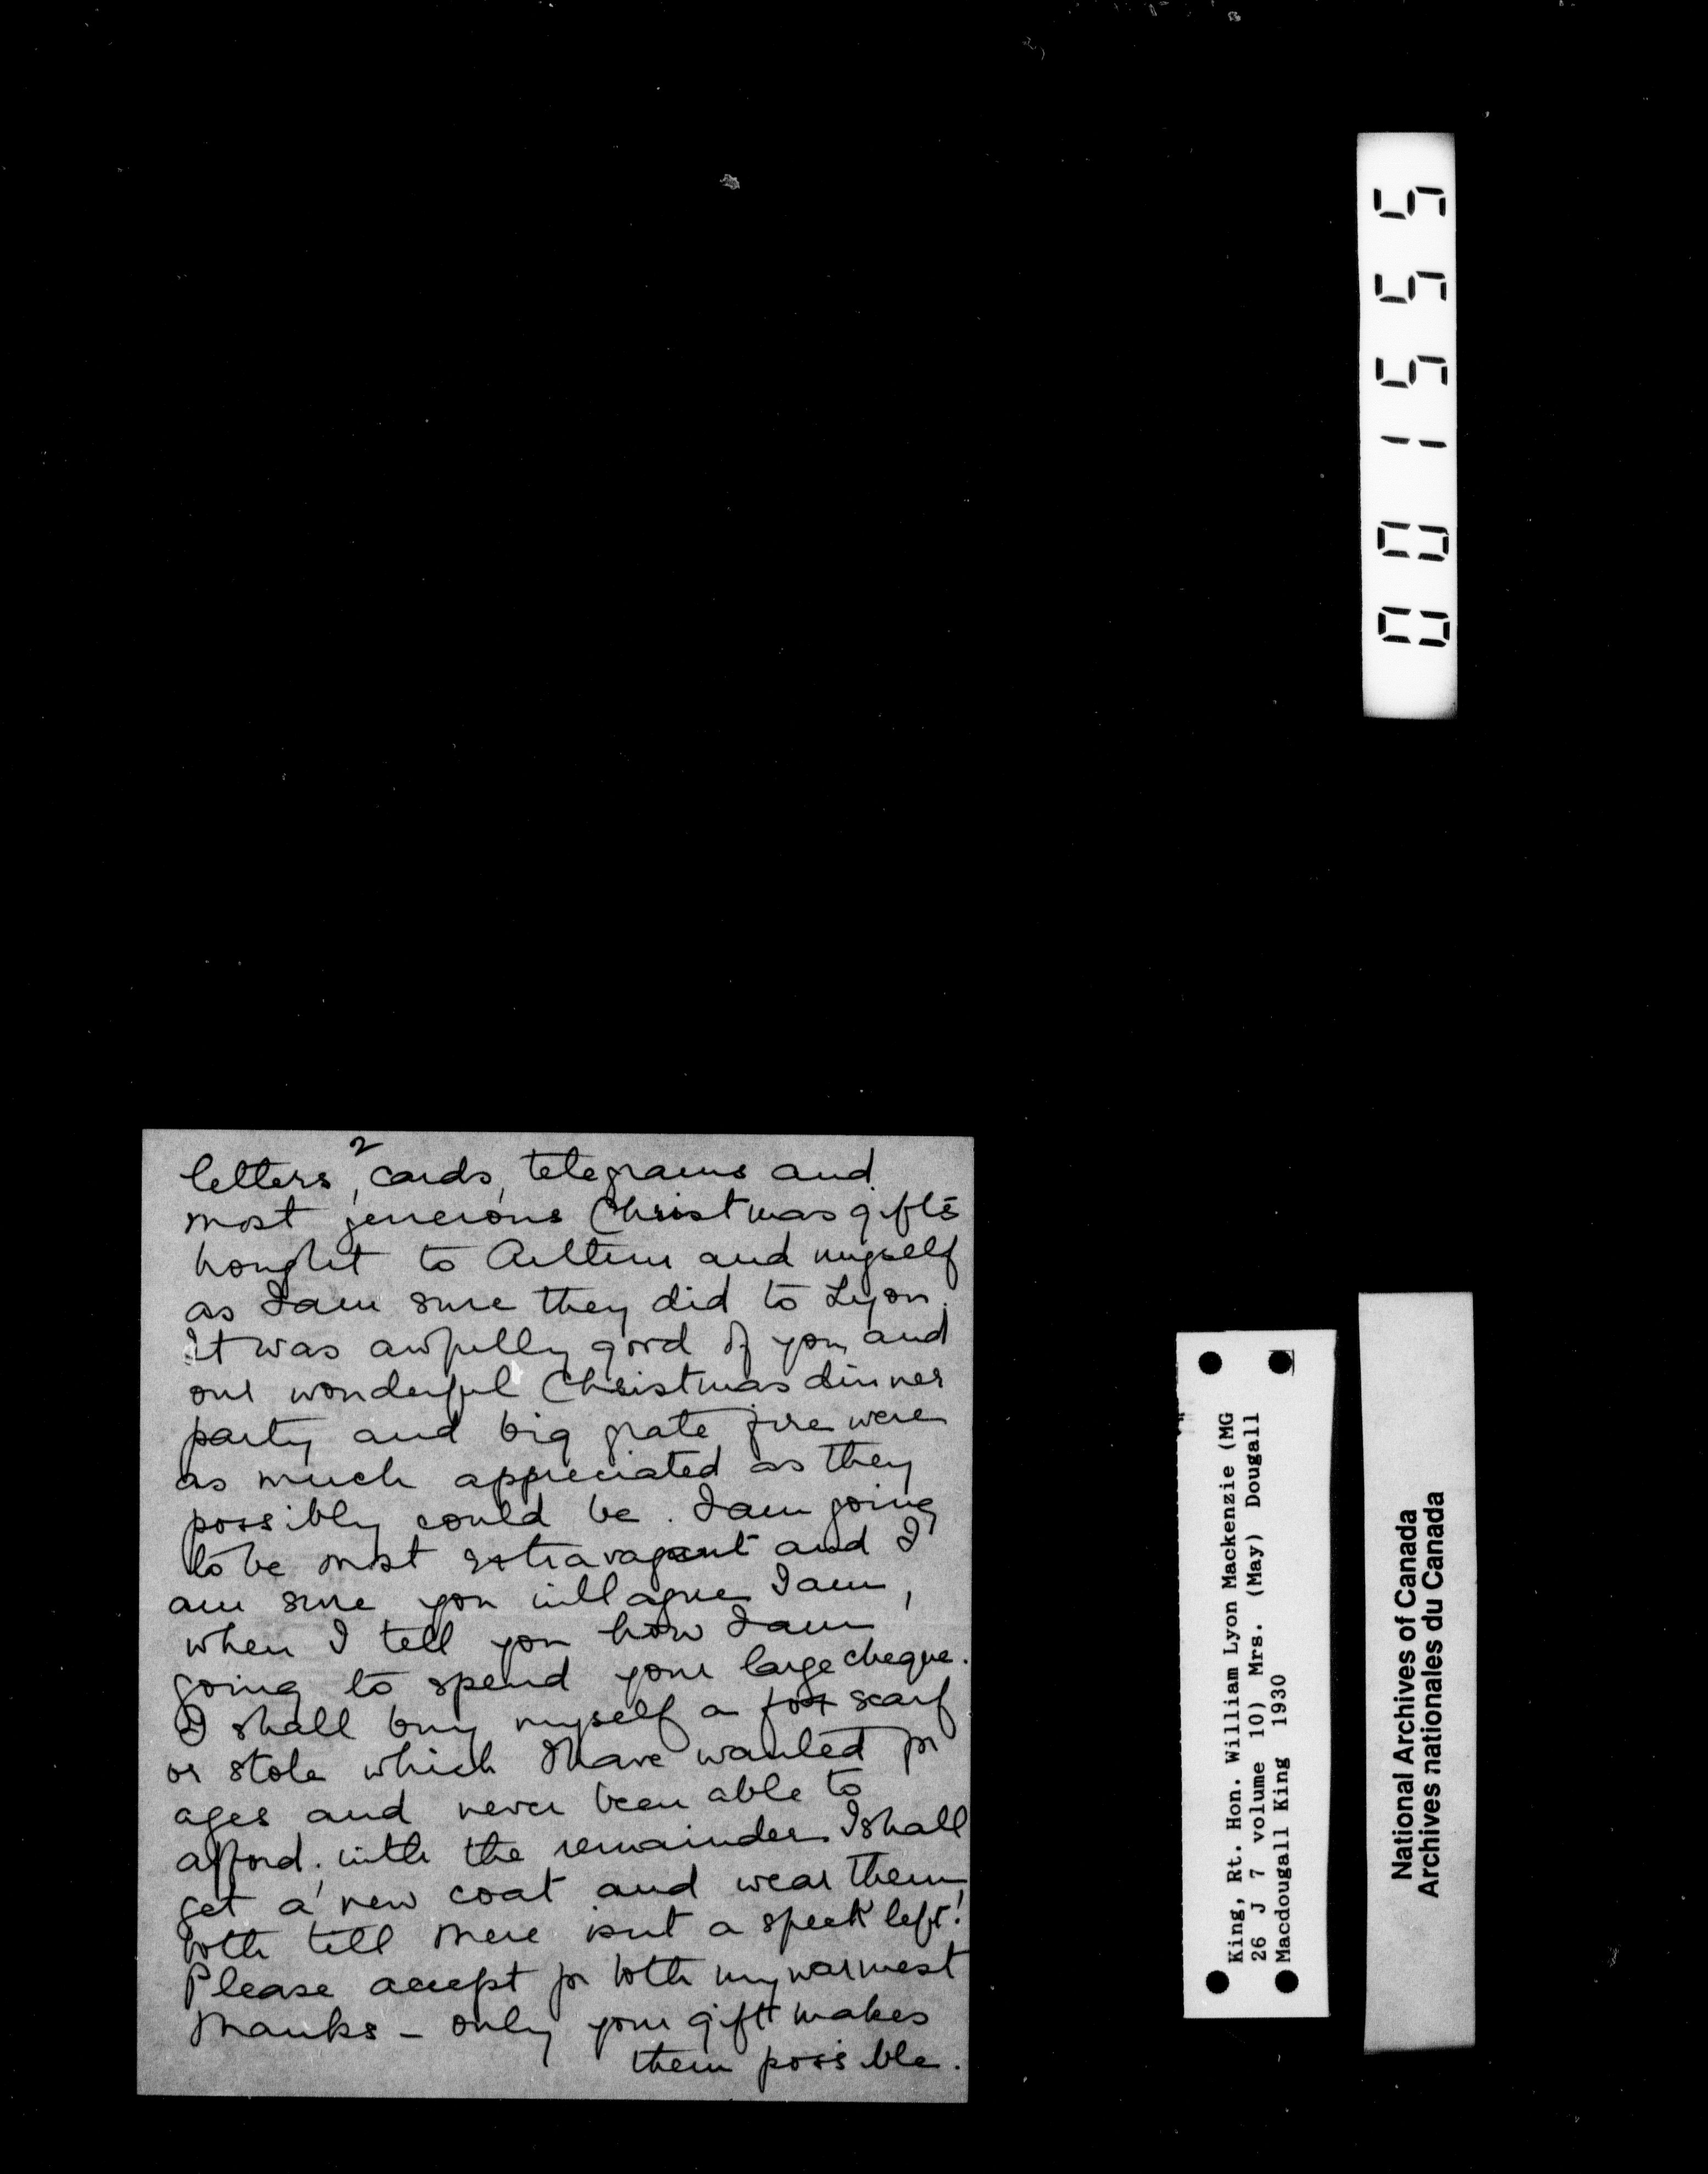 2
letters, cards, telegrams and
most generous Christmas gifts
brought to Arthur and myself
as I am sure they did to Lyon.
It was awfully good of you and
our wonderful Christmas dinner
party and big grate fire were
as much appreciated as they
possibly could be. I am going
to be most extravagant and I
am sure you will agree I am,
when I tell you how I am
going to spend your large cheque.
I shall buy myself a fox scarf
or stole which I have wanted for
ages and never been able to
afford. with the remainder I shall
get a new coat and wear them
both till there isnt a speck left!
Please accept for both my warmest
thanks – only your gift makes
them possible.
001555
King, Rt. Hon. William Lyon Mackenzie (MG
26 J 7 volume 10) Mrs. (May) Dougall
Macdougall King 1930
National Archives of Canada
Archives nationales du Canada